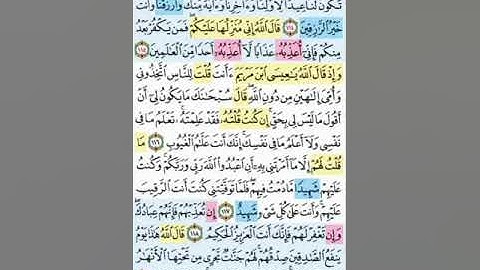 تَكُونُ لَنَا عِيدًا لِّأَوَّلِنَا وَءَاخِرِنَا وَءَايَةً مِّنكَ وَٱرْزُقْنَا وَأَنتَ
خَيْرُ ٱلرَّٰزِقِينَ ١١٤ قَالَ ٱللَّهُ إِنِّى مُنَزِّلُهَا عَلَيْكُمْ فَمَن يَكْفُرْ بَعْدُ
مِنكُمْ فَإِنِّىٓ أُعَذِّبُهُۥ عَذَابًا لَّآ أُعَذِّبُهُۥٓ أَحَدًا مِّنَ ٱلْعَٰلَمِينَ ١١٥
وَإِذْ قَالَ ٱللَّهُ يَٰعِيسَى ٱبْنَ مَرْيَمَ ءَأَنتَ قُلْتَ لِلنَّاسِ ٱتَّخِذُونِى
وَأُمِّىَ إِلَٰهَيْنِ مِن دُونِ ٱللَّهِ قَالَ سُبْحَٰنَكَ مَا يَكُونُ لِىٓ أَنْ
أَقُولَ مَا لَيْسَ لِى بِحَقٍّ إِن كُنتُ قُلْتُهُۥ فَقَدْ عَلِمْتَهُۥ تَعْلَمُ مَا فِى
نَفْسِى وَلَآ أَعْلَمُ مَا فِى نَفْسِكَ إِنَّكَ أَنتَ عَلَّٰمُ ٱلْغُيُوبِ ١١٦ مَا
قُلْتُ لَهُمْ إِلَّا مَآ أَمَرْتَنِى بِهِۦٓ أَنِ ٱعْبُدُوا۟ ٱللَّهَ رَبِّى وَرَبَّكُمْ وَكُنتُ
عَلَيْهِمْ شَهِيدًا مَّا دُمْتُ فِيهِمْ فَلَمَّا تَوَفَّيْتَنِى كُنتَ أَنتَ ٱلرَّقِيبَ
عَلَيْهِمْ وَأَنتَ عَلَىٰ كُلِّ شَىْءٍ شَهِيدٌ ١١٧ إِن تُعَذِّبْهُمْ فَإِنَّهُمْ عِبَادُكَ
وَإِن تَغْفِرْ لَهُمْ فَإِنَّكَ أَنتَ ٱلْعَزِيزُ ٱلْحَكِيمُ ١١٨ قَالَ ٱللَّهُ هَٰذَا يَوْمُ
يَنفَعُ ٱلصَّٰدِقِينَ صِدْقُهُمْ لَهُمْ جَنَّٰتٌ تَجْرِى مِن تَحْتِهَا ٱلْأَنْهَٰرُ